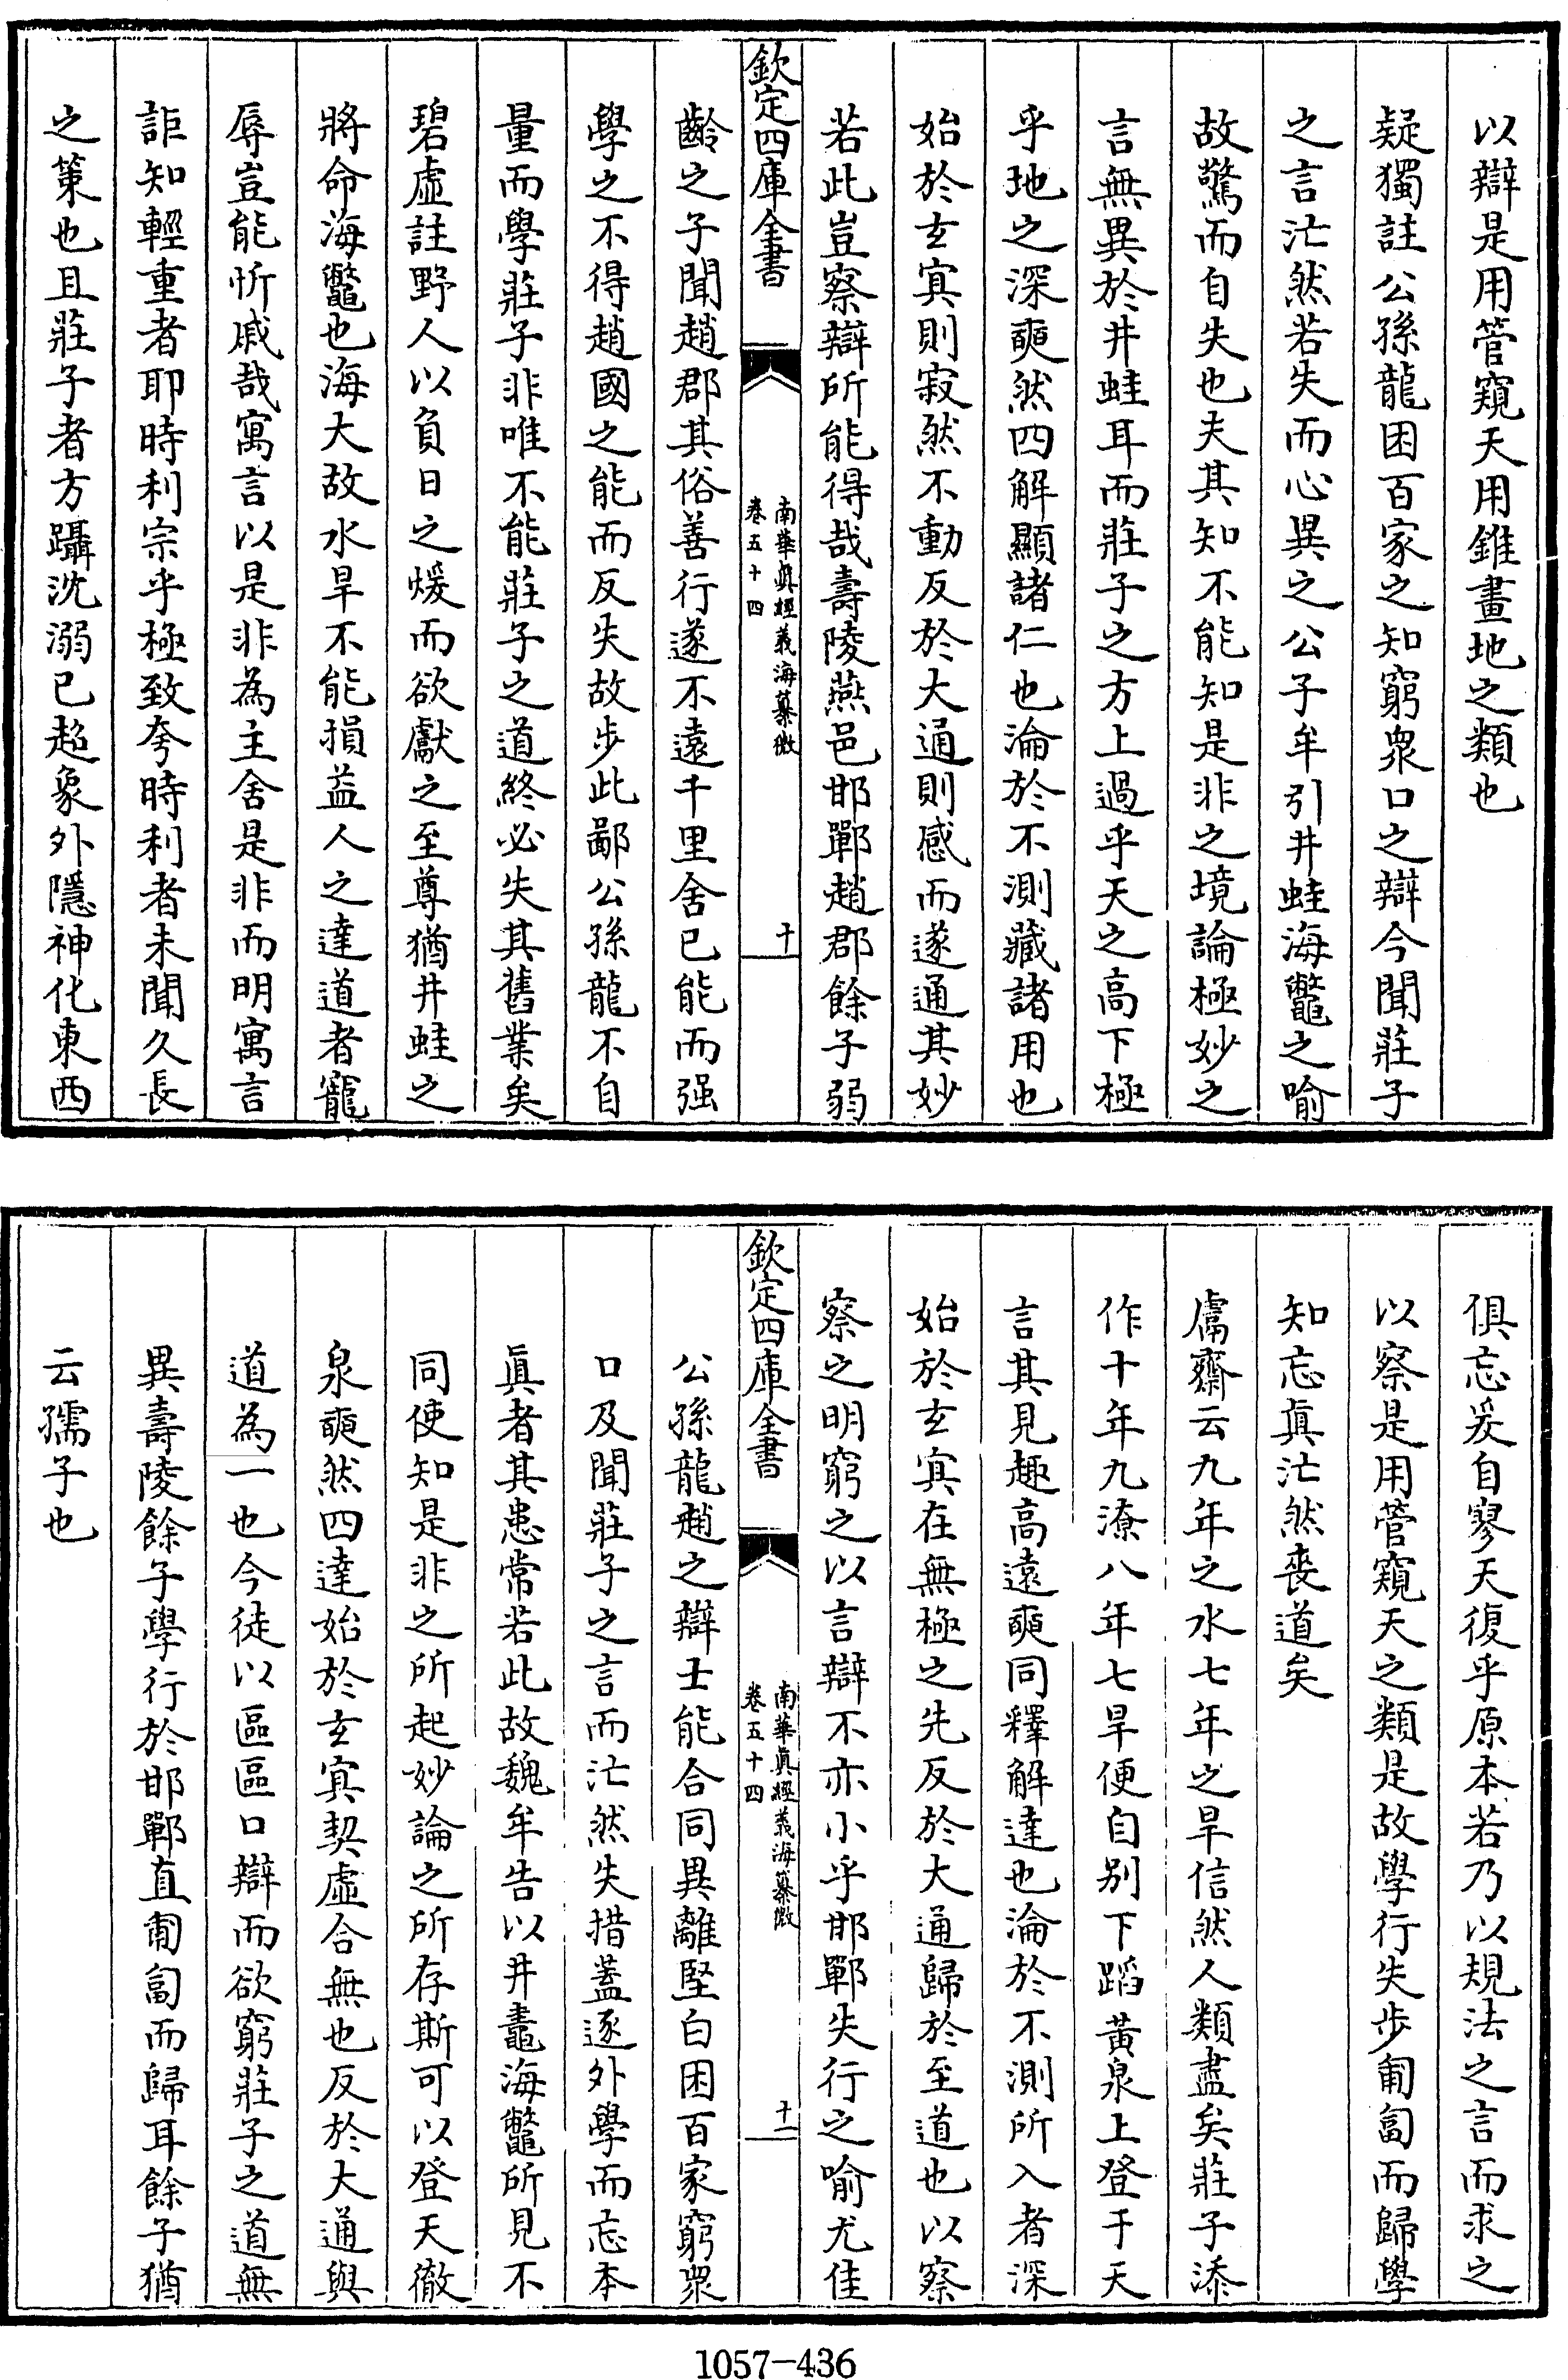 以辯是用管窺天用錐畫地之類也
疑獨註公孫龍困百家之知窮衆口之辯今聞莊子
之言汒然若失而心異之公子牟引井蛙海鼈之喻
故驚而自失也夫其知不能知是非之境論極妙之
言無異於井蛙耳而莊子之方上過乎天之高下極
乎地之深奭然四解顯諸仁也淪於不測藏諸用也
始於玄寘則寂然不動反於大通則感而遂通其妙
若此豈察辯所能得哉壽陵燕邑邯鄲趙郡餘子弱
欽定四庫全書
南華真經義海纂微
卷五十四
十
齡之子聞趙郡其俗善行遂不遠千里舍已能而强
學之不得趙國之能而反失故步此鄙公孫龍不自
量而學莊子非唯不能莊子之道終必失其舊業矣
碧虛註野人以負日之煖而欲獻之至尊猶井蛙之
將命海鼈也海大故水旱不能損益人之達道者寵
辱豈能忻戚哉寓言以是非為主舍是非而明寓言
詎知輕重者耶時利宗乎極致夸時利者未聞久長
之策也且莊子者方躡沈溺已超象外隱神化東西
俱忘爰自寥天復乎原本若乃以規法之言而求之
以察是用管窺天之類是故學行失步匍匐而歸學
知忘眞汒然喪道矣
鬳齋云九年之水七年之旱信然人類盡矣莊子添
作十年九潦八年七旱便自别下蹈黃泉上登于天
言其見趣高遠奭同釋解達也淪於不測所入者深
始於玄寘在無極之先反於大通歸於至道也以察
察之明窮之以言辯不亦小乎邯鄲失行之喻尤佳
欽定四庫全書
南華真經義海纂微
卷五十四
十一
公孫龍趙之辯士能合同異離堅白困百家窮衆
口及聞莊子之言而汒然失措蓋逐外學而忘本
眞者其患常若此故魏牟告以井鼃海鼈所見不
同使知是非之所起妙論之所存斯可以登天徹
泉奭然四達始於玄寘契虛合無也反於大通與
道為一也今徒以區區口辯而欲窮莊子之道無
異壽陵餘子學行於邯鄲直匍匐而歸耳餘子猶
云孺子也
1057-436